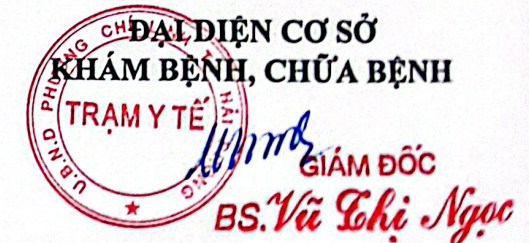 ĐẠI DIỆN CƠ SỞ
KHÁM BỆNH, CHỮA BỆNH
U.B.N.D PHƯỜNG
TRẠM Y TẾ
GIÁM ĐỐC
BS. Vũ Thị Ngọc